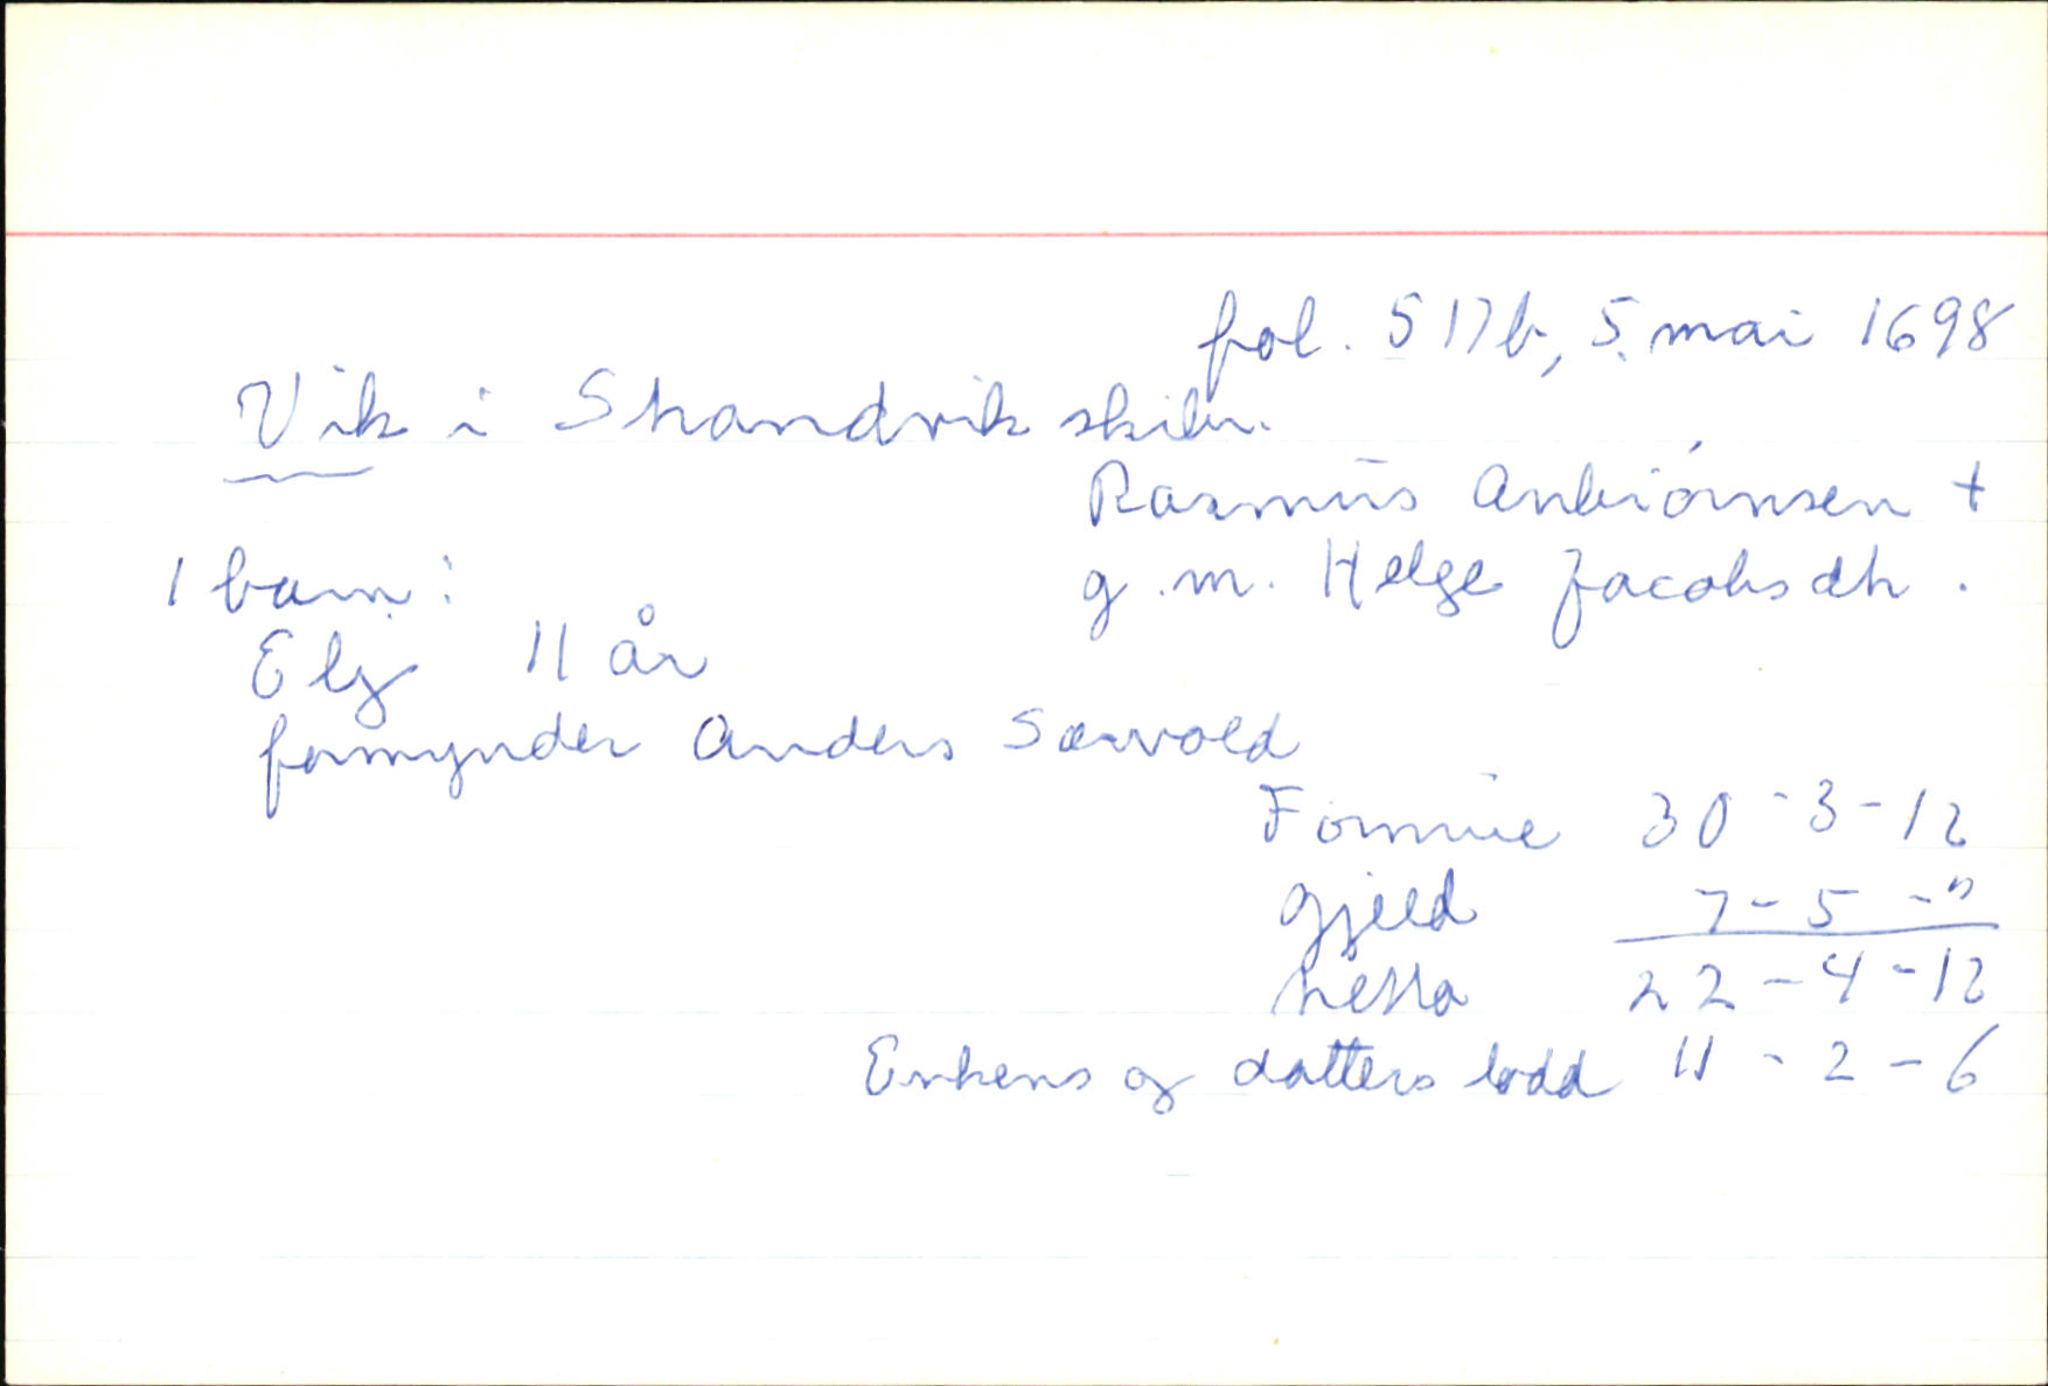 fol. 517b, 5. mai 1698
Vik i Strandvik skibr.
Rasmus Anbiørnsen +
g.m. Helge Jacobsdtr.
1 barn:
Elj 11 år
formynder Anders Sævold
Formue 30-3-12
gjeld 7-5-"
netto 22-4-12
Enkens og datters lodd 11-2-6